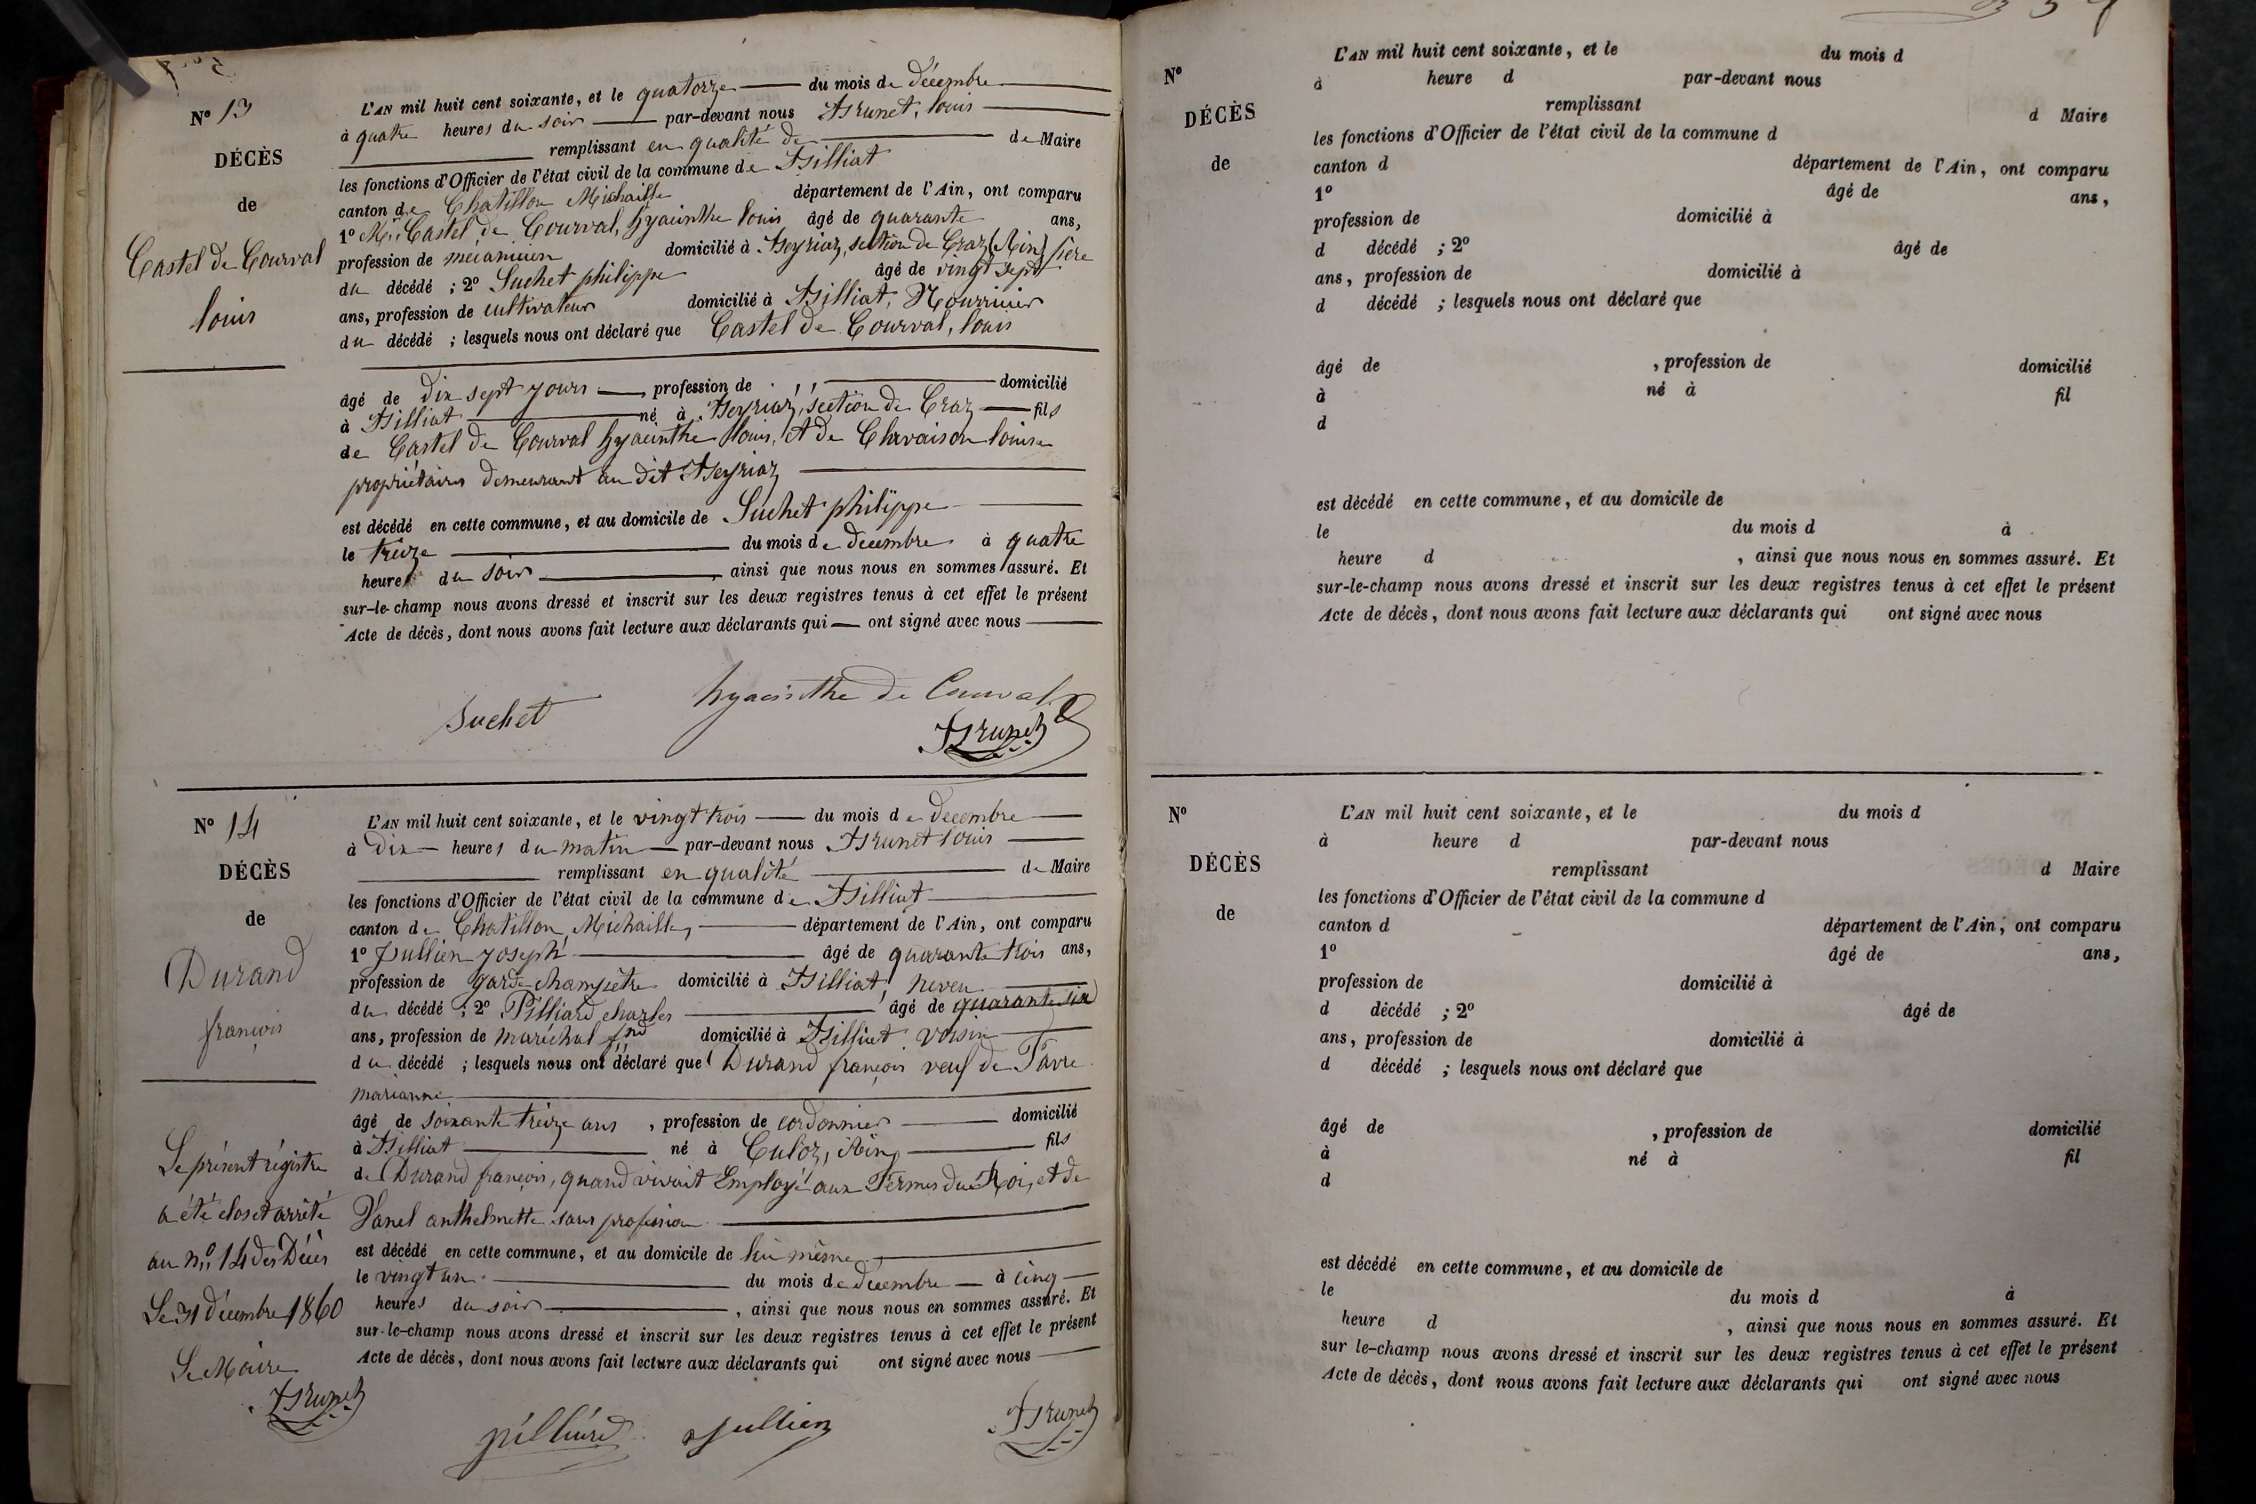 N° 13
DÉCÈS
de
Castel de Courval
louis
L'AN mil huit cent soixante, et le quatorze du mois de décembre
à quatre heures du soir par-devant nous Brunet, louis
remplissant en qualité de de Maire
les fonctions d'Officier de l'état civil de la commune de Billiat
canton de Chatillon Michaille département de l'Ain, ont comparu
1° Mr Castel de Courval, hyacinthe louis âgé de quarante ans,
profession de mécanicien domicilié à Beyriaz, section de Craz (Ain) père
du décédé ; 2° Suchet philippe âgé de vingt sept
ans, profession de cultivateur domicilié à Billiat, Nourricier
du décédé ; lesquels nous ont déclaré que Castel de Courval, louis
âgé de dix sept jours profession de domicilié
à Billiat né à Beyriaz, section de Craz fils
de Castel de Courval hyacinthe louis, et de Chavaison louise
propriétaires demeurant au dit Beyriaz
est décédé en cette commune, et au domicile de Suchet philippe
le treize du mois de decembre à quatre
heures du soir, ainsi que nous nous en sommes assuré. Et
sur-le-champ nous avons dressé et inscrit sur les deux registres tenus à cet effet le présent
Acte de décès, dont nous avons fait lecture aux déclarants qui ont signé avec nous
Suchet hyacinthe de Courval
Brunet
N° 14
DÉCÈS
de
Durand
françois
L'AN mil huit cent soixante, et le vingt trois du mois de decembre
à dix heures du matin par-devant nous Brunet louis
remplissant en qualité de Maire
les fonctions d'Officier de l'état civil de la commune de Billiat
canton de Chatillon Michaille, département de l'Ain, ont comparu
1° Jullien joseph âgé de quarante trois ans,
profession de garde champêtre domicilié à Billiat, neveu
du décédé ; 2° Pilliard charles âgé de quarante six
ans, profession de maréchal fnd domicilié à Billiat voisin
du décédé ; lesquels nous ont déclaré que Durand françois veuf de Favre
marianne
âgé de soixante treize ans, profession de cordonnier domicilié
à Billiat né à Culoz, Ain, fils
de Durand françois, quand vivait Employé aux Fermes du Roi, et de
Vanel anthelmette sans profession
est décédé en cette commune, et au domicile de lui même
le vingt un du mois de decembre à cinq
heures du soir, ainsi que nous nous en sommes assuré. Et
sur-le-champ nous avons dressé et inscrit sur les deux registres tenus à cet effet le présent
Acte de décès, dont nous avons fait lecture aux déclarants qui ont signé avec nous
pilliard jullien Brunet
Le présent régistre
a été clos et arrêté
au n° 14 des Décès
Le 31 décembre 1860
Le Maire
Brunet
N°
DÉCÈS
de
L'AN mil huit cent soixante, et le du mois d
à heure d par-devant nous
remplissant d Maire
les fonctions d'Officier de l'état civil de la commune d
canton d département de l'Ain, ont comparu
1° âgé de ans,
profession de domicilié à
d décédé ; 2° âgé de
ans, profession de domicilié à
d décédé ; lesquels nous ont déclaré que
âgé de , profession de domicilié
à né à fil
d
est décédé en cette commune, et au domicile de
le du mois d à
heure d , ainsi que nous nous en sommes assuré. Et
sur-le-champ nous avons dressé et inscrit sur les deux registres tenus à cet effet le présent
Acte de décès, dont nous avons fait lecture aux déclarants qui ont signé avec nous
N°
DÉCÈS
de
L'AN mil huit cent soixante, et le du mois d
à heure d par-devant nous
remplissant d Maire
les fonctions d'Officier de l'état civil de la commune d
canton d département de l'Ain, ont comparu
1° âgé de ans,
profession de domicilié à
d décédé ; 2° âgé de
ans, profession de domicilié à
d décédé ; lesquels nous ont déclaré que
âgé de , profession de domicilié
à né à fil
d
est décédé en cette commune, et au domicile de
le du mois d à
heure d , ainsi que nous nous en sommes assuré. Et
sur le-champ nous avons dressé et inscrit sur les deux registres tenus à cet effet le présent
Acte de décès, dont nous avons fait lecture aux déclarants qui ont signé avec nous